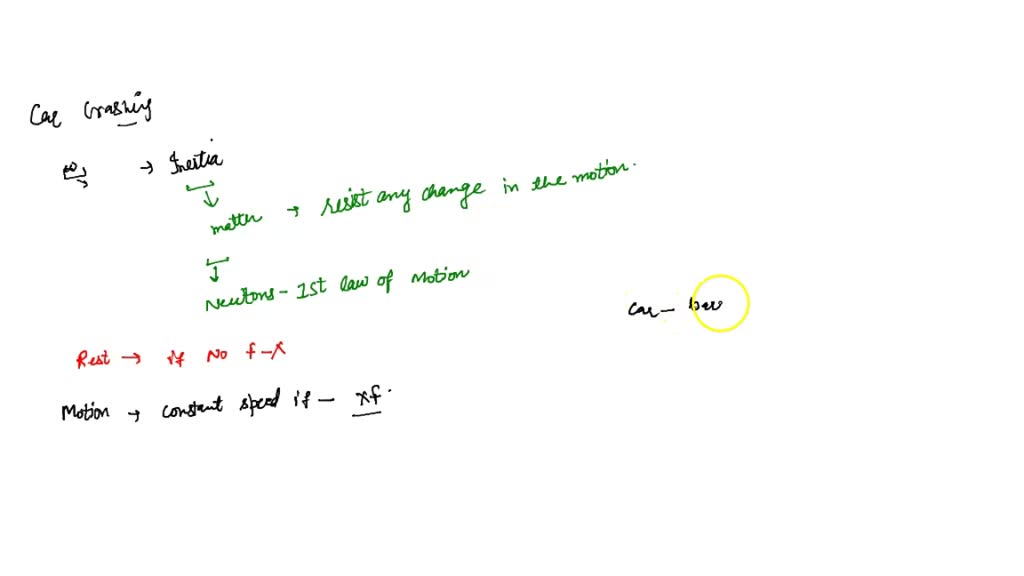 Car Crashing
→ Inertia
matter → resist any change in the motion.
Newtons - 1st law of Motion
Car -
Rest → if No f - X
Motion → constant speed if - xf.